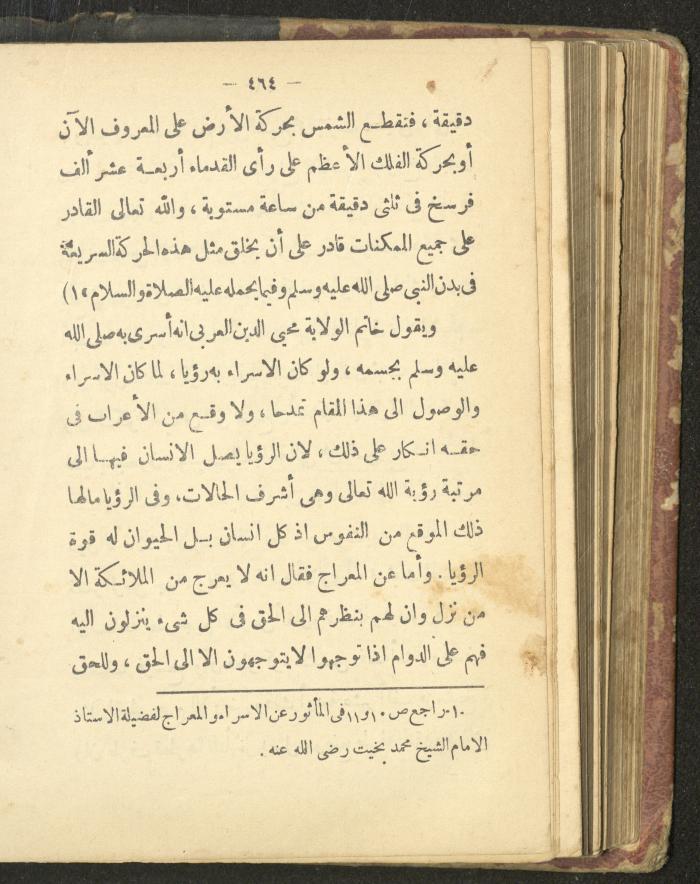 — ٤٦٤ —
دقيقة ، فتقطع الشمس بحركة الأرض على المعروف الآن
أو بحركة الفلك الأعظم على رأى القدماء أربعة عشر ألف
فرسخ فى ثلثى دقيقة من ساعة مستوية ، والله تعالى القادر
على جميع الممكنات قادر على أن يخلق مثل هذه الحركة السريعة
فى بدن النبي صلى الله عليه وسلم وفيما يحمله عليه الصلاة والسلام «١)
ويقول خاتم الولاية محيي الدين العربي انه أسرى به صلى الله
عليه وسلم بجسمه ، ولو كان الاسراء به رؤيا ، لما كان الاسراء
والوصول الى هذا المقام تمدحا ، ولا وقع من الأعراب فى
حقه انكار على ذلك ، لان الرؤيا يصل الانسان فيها الى
مرتبة رؤية الله تعالى وهى أشرف الحالات، وفى الرؤيا مالها
ذلك الموقع من النفوس اذ كل انسان بل الحيوان له قوة
الرؤيا . وأما عن المعراج فقال انه لا يعرج من الملائكة الا
من نزل وان لهم بنظرهم الى الحق فى كل شىء ينزلون اليه
فهم على الدوام اذا توجهوا لا يتوجهون الا الى الحق ، وللحق
-١- راجع ص ١٠ و ١١ فى المأثور عن الاسراء والمعراج لفضيلة الاستاذ
الامام الشيخ محمد بخيت رضى الله عنه .